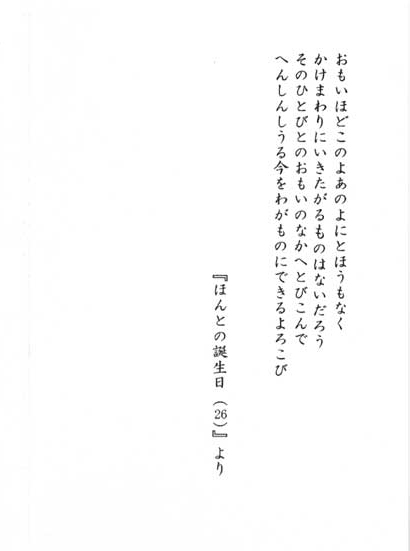 おもいほどこのよあのよにとほうもなく
かけまわりにいきたがるものはないだろう
そのひとびとのおもいのなかへとびこんで
へんしんしうる今をわがものにできるよろこび
『ほんとの誕生日（26）』より